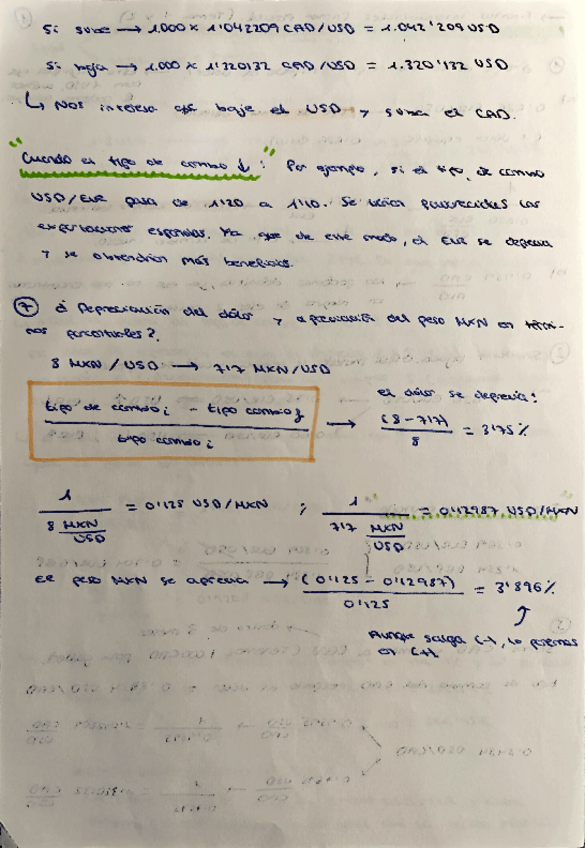 Si sube → 1.000 x 1'042209 CAD/USD = 1.042'209 USD
Si baja → 1.000 x 1'320132 CAD/USD = 1.320'132 USD
↳ Nos interesa que baje el USD y suba el CAD.
"Cuando el tipo de cambio ↓": Por ejemplo, si el tipo de cambio
USD/EUR pasa de 1'120 a 1'110. Se verían favorecidos los
exportadores españoles. Ya que de este modo, el EUR se deprecia
y se obtendrían más beneficios.
⑦ ¿Depreciación del dólar y apreciación del peso MXN en térmi-
nos porcentuales?
8 MXN/USD → 7'17 MXN/USD
el dólar se deprecia:
tipo de cambio i - tipo cambio f / tipo cambio i → (8 - 7'17) / 8 = 3'75%
1 / 8 MXN/USD = 0'125 USD/MXN ; 1 / 7'17 MXN/USD = 0'12987 USD/MXN
El peso MXN se aprecia → (0'125 - 0'12987) / 0'125 = 3'896%
Aunque salga (-), lo ponemos
en (+).